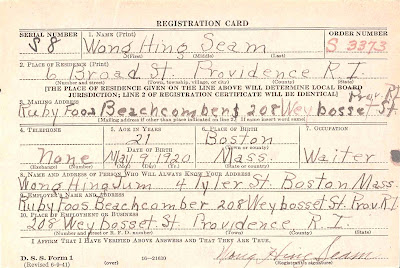 REGISTRATION CARD
SERIAL NUMBER 1. NAME (Print) ORDER NUMBER
S 8 Wong Hing Seam S 3373
(First) (Middle) (Last)
2. PLACE OF RESIDENCE (Print)
6 Broad St. Providence R.I.
(Number and street) (Town, township, village, or city) (County) (State)
[THE PLACE OF RESIDENCE GIVEN ON THE LINE ABOVE WILL DETERMINE LOCAL BOARD
JURISDICTION; LINE 2 OF REGISTRATION CERTIFICATE WILL BE IDENTICAL]
Prov. R.I.
3. MAILING ADDRESS
Ruby Foos Beachcombers 208 Weybosset St.
[Mailing address if other than place indicated on line 2. If same insert word same]
4. TELEPHONE 5. AGE IN YEARS 6. PLACE OF BIRTH 7. OCCUPATION
21 Boston
DATE OF BIRTH (Town or county)
None May 9 1920 Mass. Waiter
(Exchange) (Number) (Mo.) (Day) (Yr.) (State or country)
8. NAME AND ADDRESS OF PERSON WHO WILL ALWAYS KNOW YOUR ADDRESS
Wong Hing Jum 4 Tyler St. Boston Mass.
9. EMPLOYER'S NAME AND ADDRESS
Ruby Foos Beachcomber 208 Weybosset St. Prov. R.I.
10. PLACE OF EMPLOYMENT OR BUSINESS
208 Weybosset St. Providence R.I.
(Number and street or R. F. D. number) (Town) (County) (State)
I AFFIRM THAT I HAVE VERIFIED ABOVE ANSWERS AND THAT THEY ARE TRUE.
D. S. S. Form 1
(Revised 6-9-41) (over) 16—21630 Wong Hing Seam
(Registrant's signature)